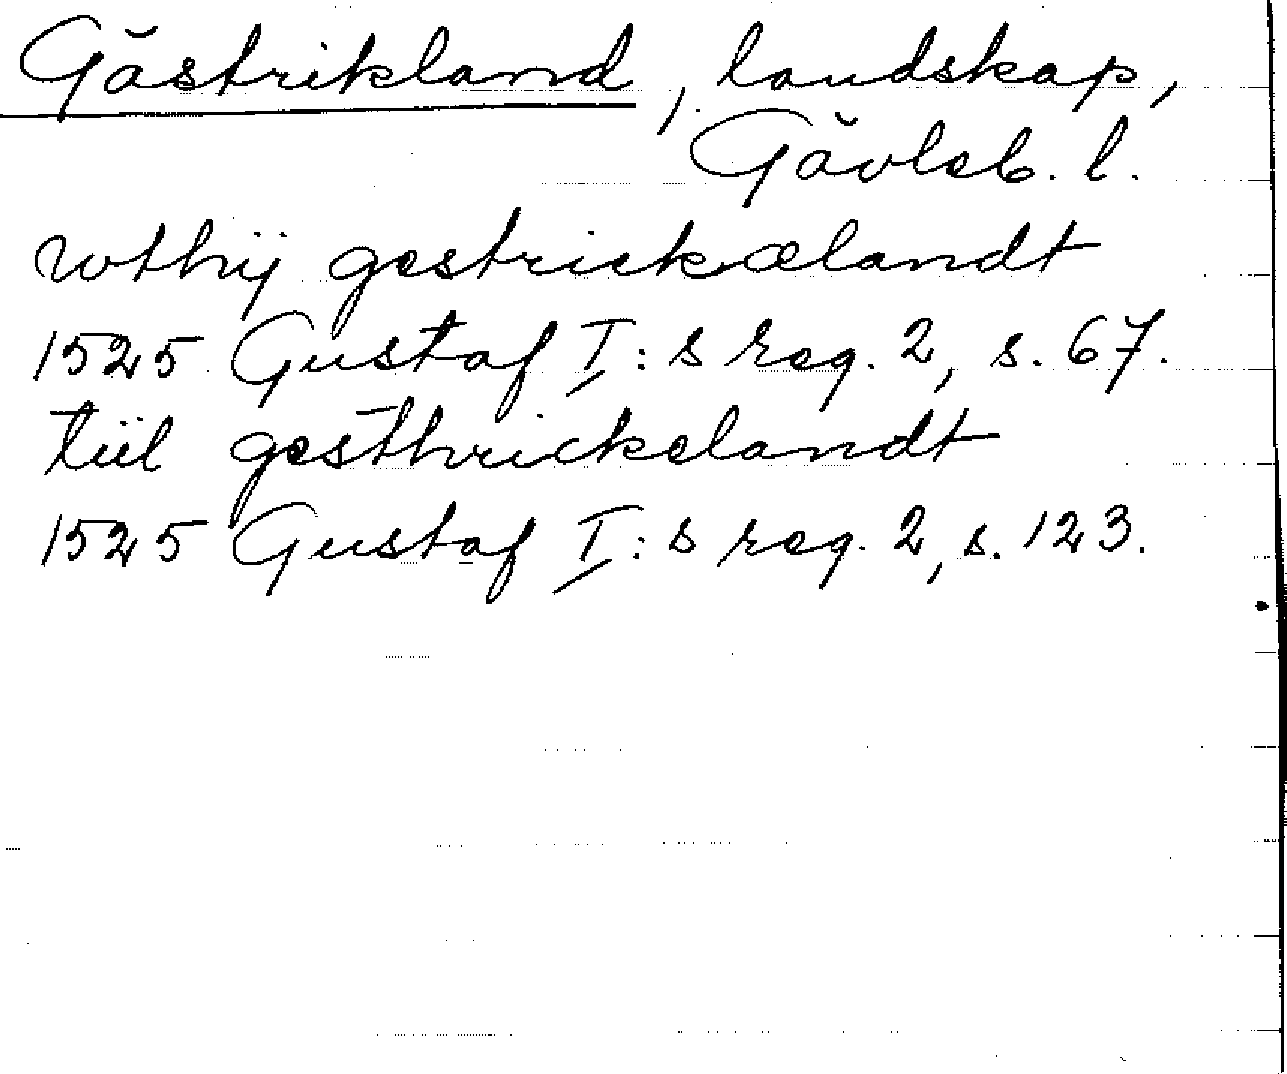 Gästrikland, landskap,
Gävleb. l.
wthij gestrickælandt
1525 Gustaf I:s reg. 2, s. 67.
tiil gesthrickelandt
1525 Gustaf I:s reg. 2, s. 123.